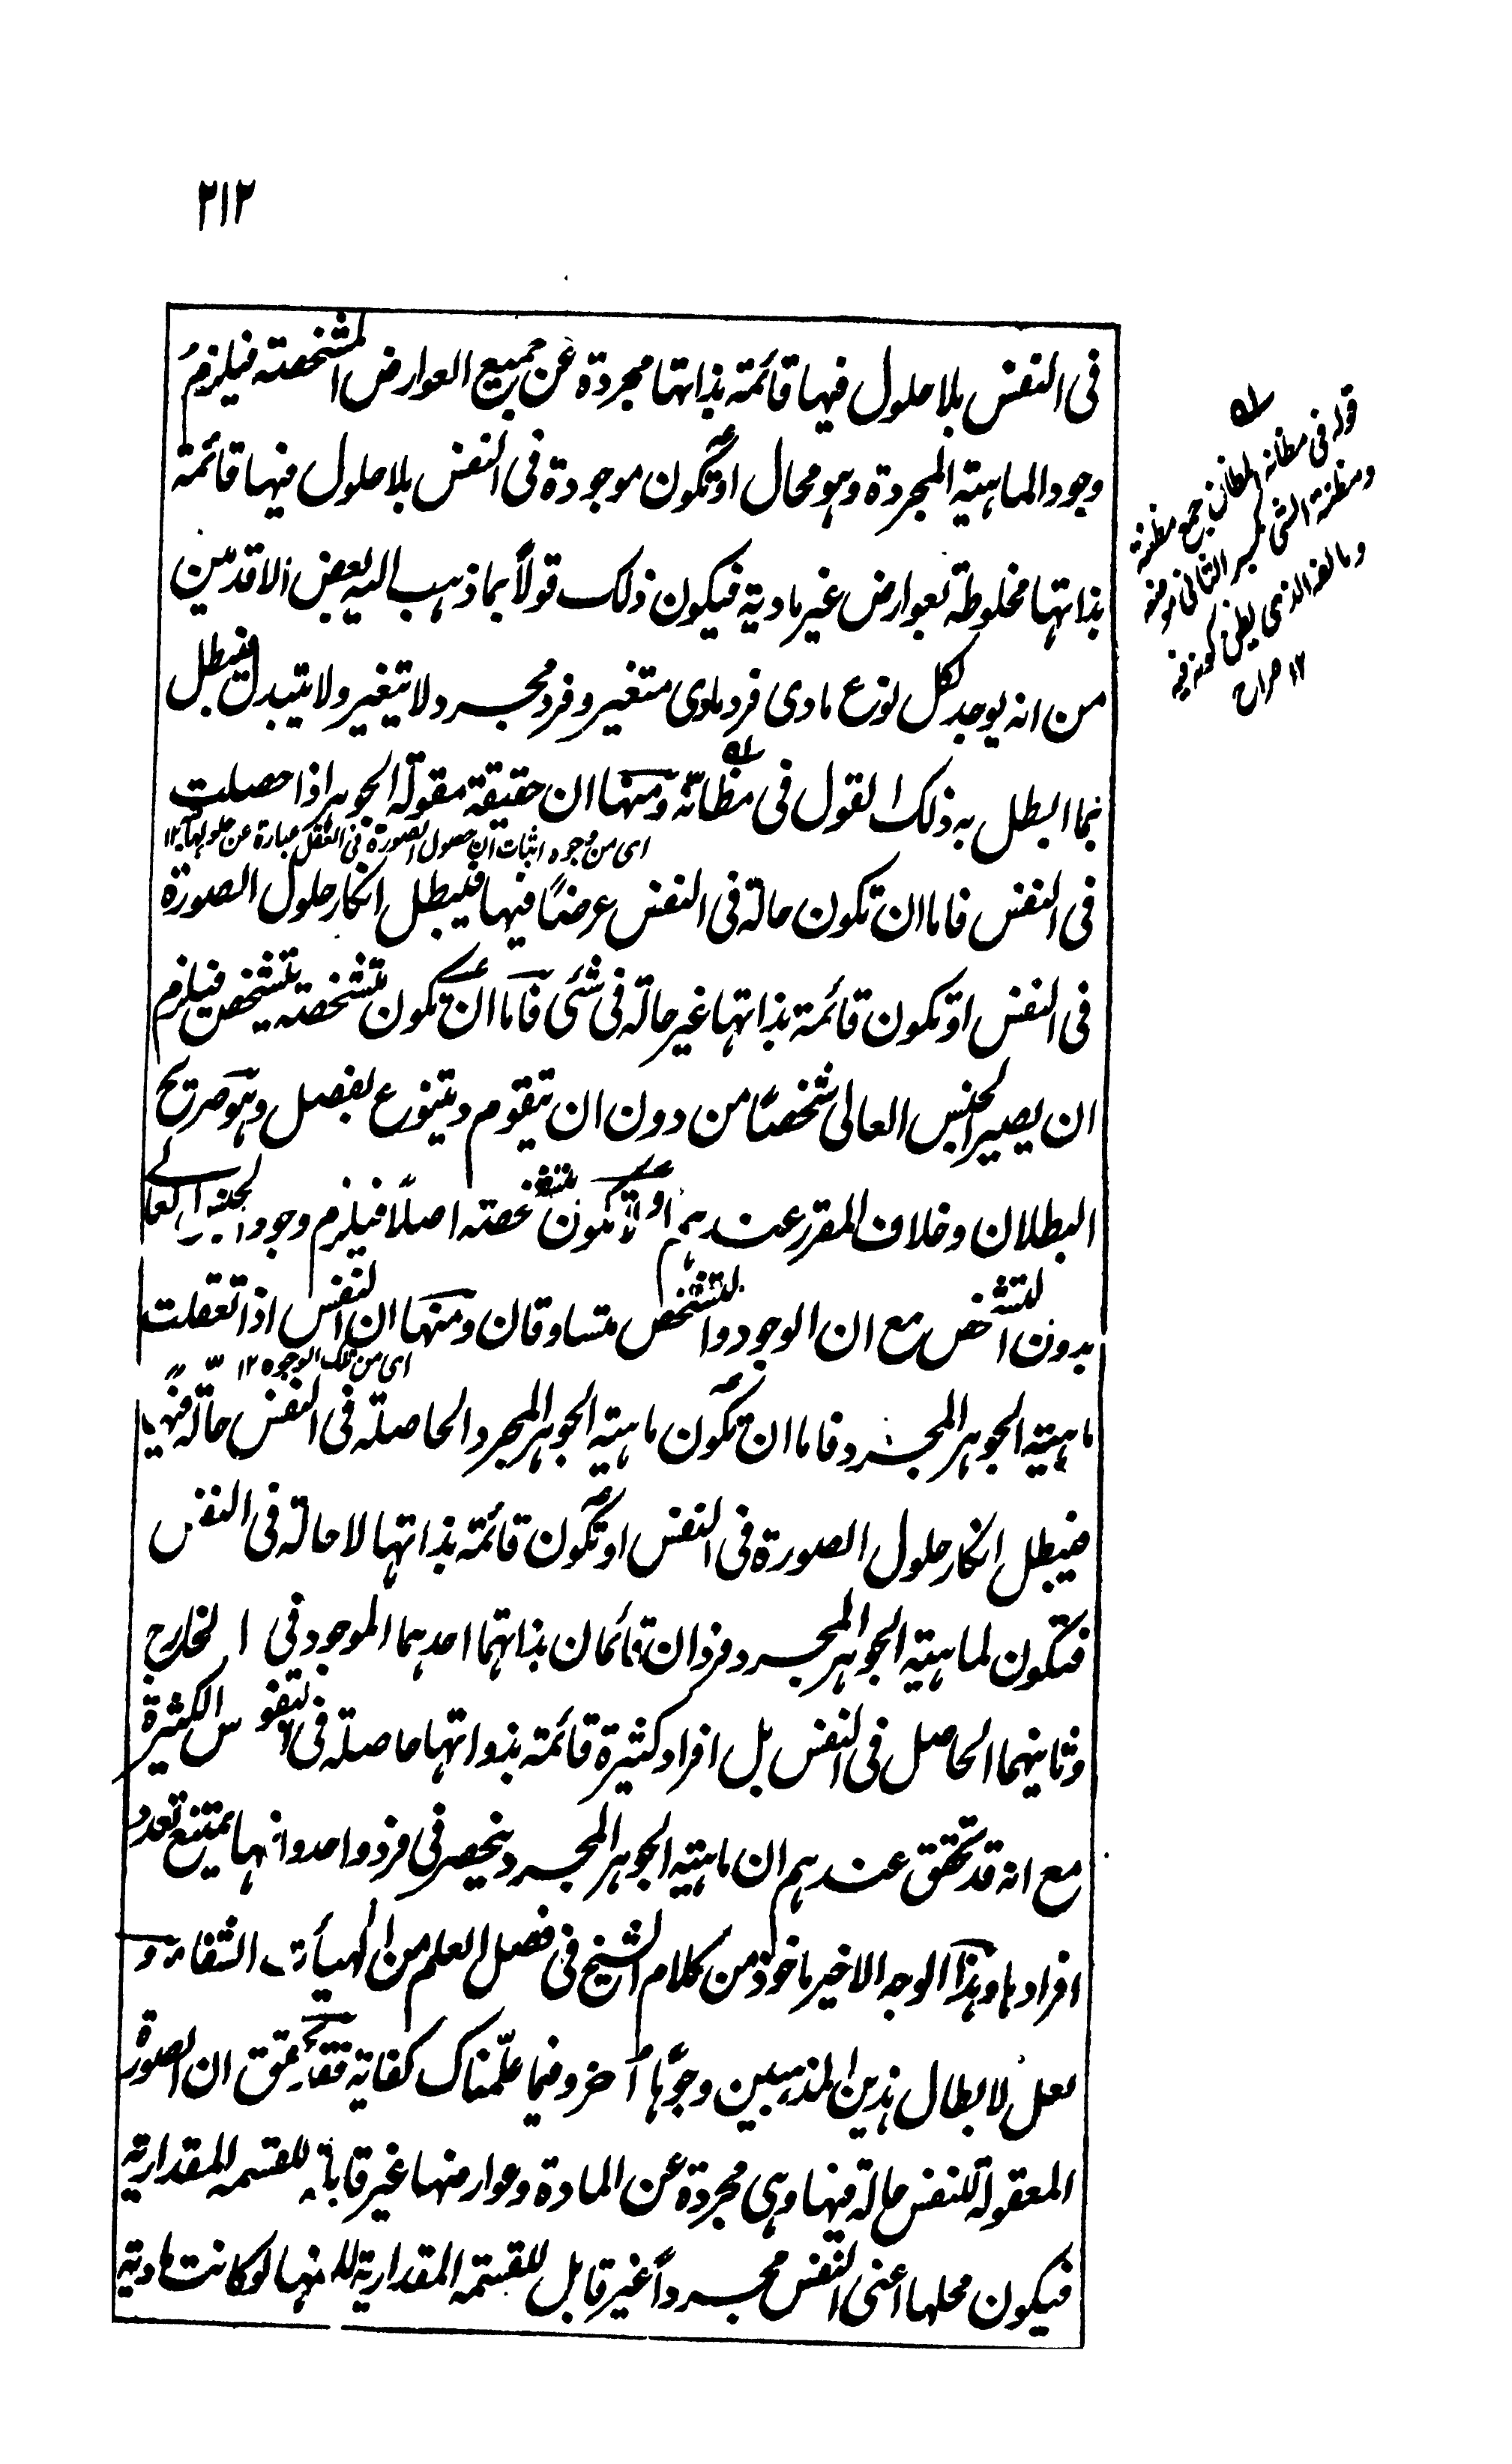 ٢١٢
فى النفس بلا حلول فيها قائمة بذاتها مجردة عن جميع العوارض المشخصة فيلزم
وجود الماهية المجردة وهو محال او تكون موجودة فى النفس بلا حلول فيها قائمة
بذاتها مخلوطة بعوارض غير مادية فيكون ذلك قولاً بما ذهب اليه بعض الاقدمين
من انه يوجد لكل نوع مادى فرد مادى متغير وفرد مجرد لا يتغير ولا يتبدل فيبطل
بما ابطل به ذلك القول فى مظانه ومنها ان حقيقة مقولة الجوهر اذا حصلت
اى من وجوه اثبات ان حصول الصورة فى العقل عبارة عن حلولها ١٢
فى النفس فاما ان تكون حالة فى النفس عرضاً فيها فيبطل انكار حلول الصورة
فى النفس او تكون قائمة بذاتها غير حالة فى شئ فاما ان تكون متشخصة بتشخص فيلزم
ان يصير الجنس العالى شخصاً من دون ان يتقوم ويتنوع بفصل وهو صريح
البطلان وخلاف المقرر عندهم او لا تكون متشخصة اصلاً فيلزم وجود الجنس العالى
بدون التشخص مع ان الوجود والتشخص متساوقان ومنها ان النفس اذا تعقلت
اى من تلك الوجوه ١٢
ماهية الجوهر المجرد فاما ان تكون ماهية الجوهر المجرد الحاصلة فى النفس حالّة فيها
فيبطل انكار حلول الصورة فى النفس او تكون قائمة بذاتها لا حالة فى النفس
فتكون لماهية الجوهر المجرد فردان قائمان بذاتهما احدهما الموجود فى الخارج
وثانيهما الحاصل فى النفس بل افراد كثيرة قائمة بذواتها حاصلة فى النفوس الكثيرة
مع انه قد تحقق عندهم ان ماهية الجوهر المجرد ينحصر فى فرد واحد وانها يمتنع تعدد
افرادها وهذا الوجه الاخير ماخوذ من كلام الشيخ فى فصل العلم من الهيات الشفاء و
لعل لابطال هذين المذهبين وجوهاً أخر وفيما علّمناك كفاية فقد تحقق ان الصورة
المعقولة للنفس حالة فيها وهى مجردة عن المادة وعوارضها غير قابلة للقسمة المقدارية
فيكون محلها اعنى النفس مجرداً غير قابل للقسمة المقدارية لانها لو كانت مادية
قوله فى مظانه المظان جمع مظنة
ومظنة الشئ بكسر الثانى موضعه
ومالفه الذى يظن كونه فيه
١٢